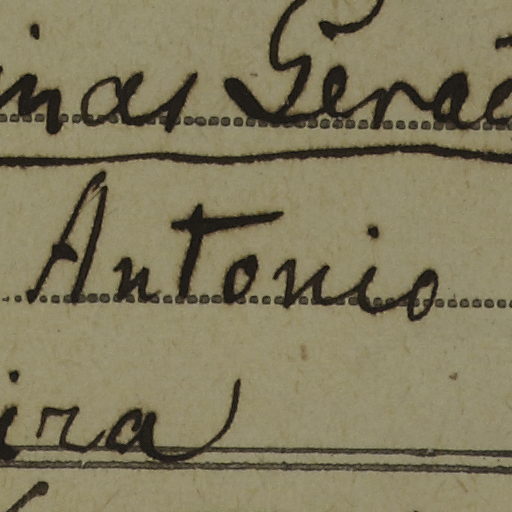 inas Gerae
Antonio
ira